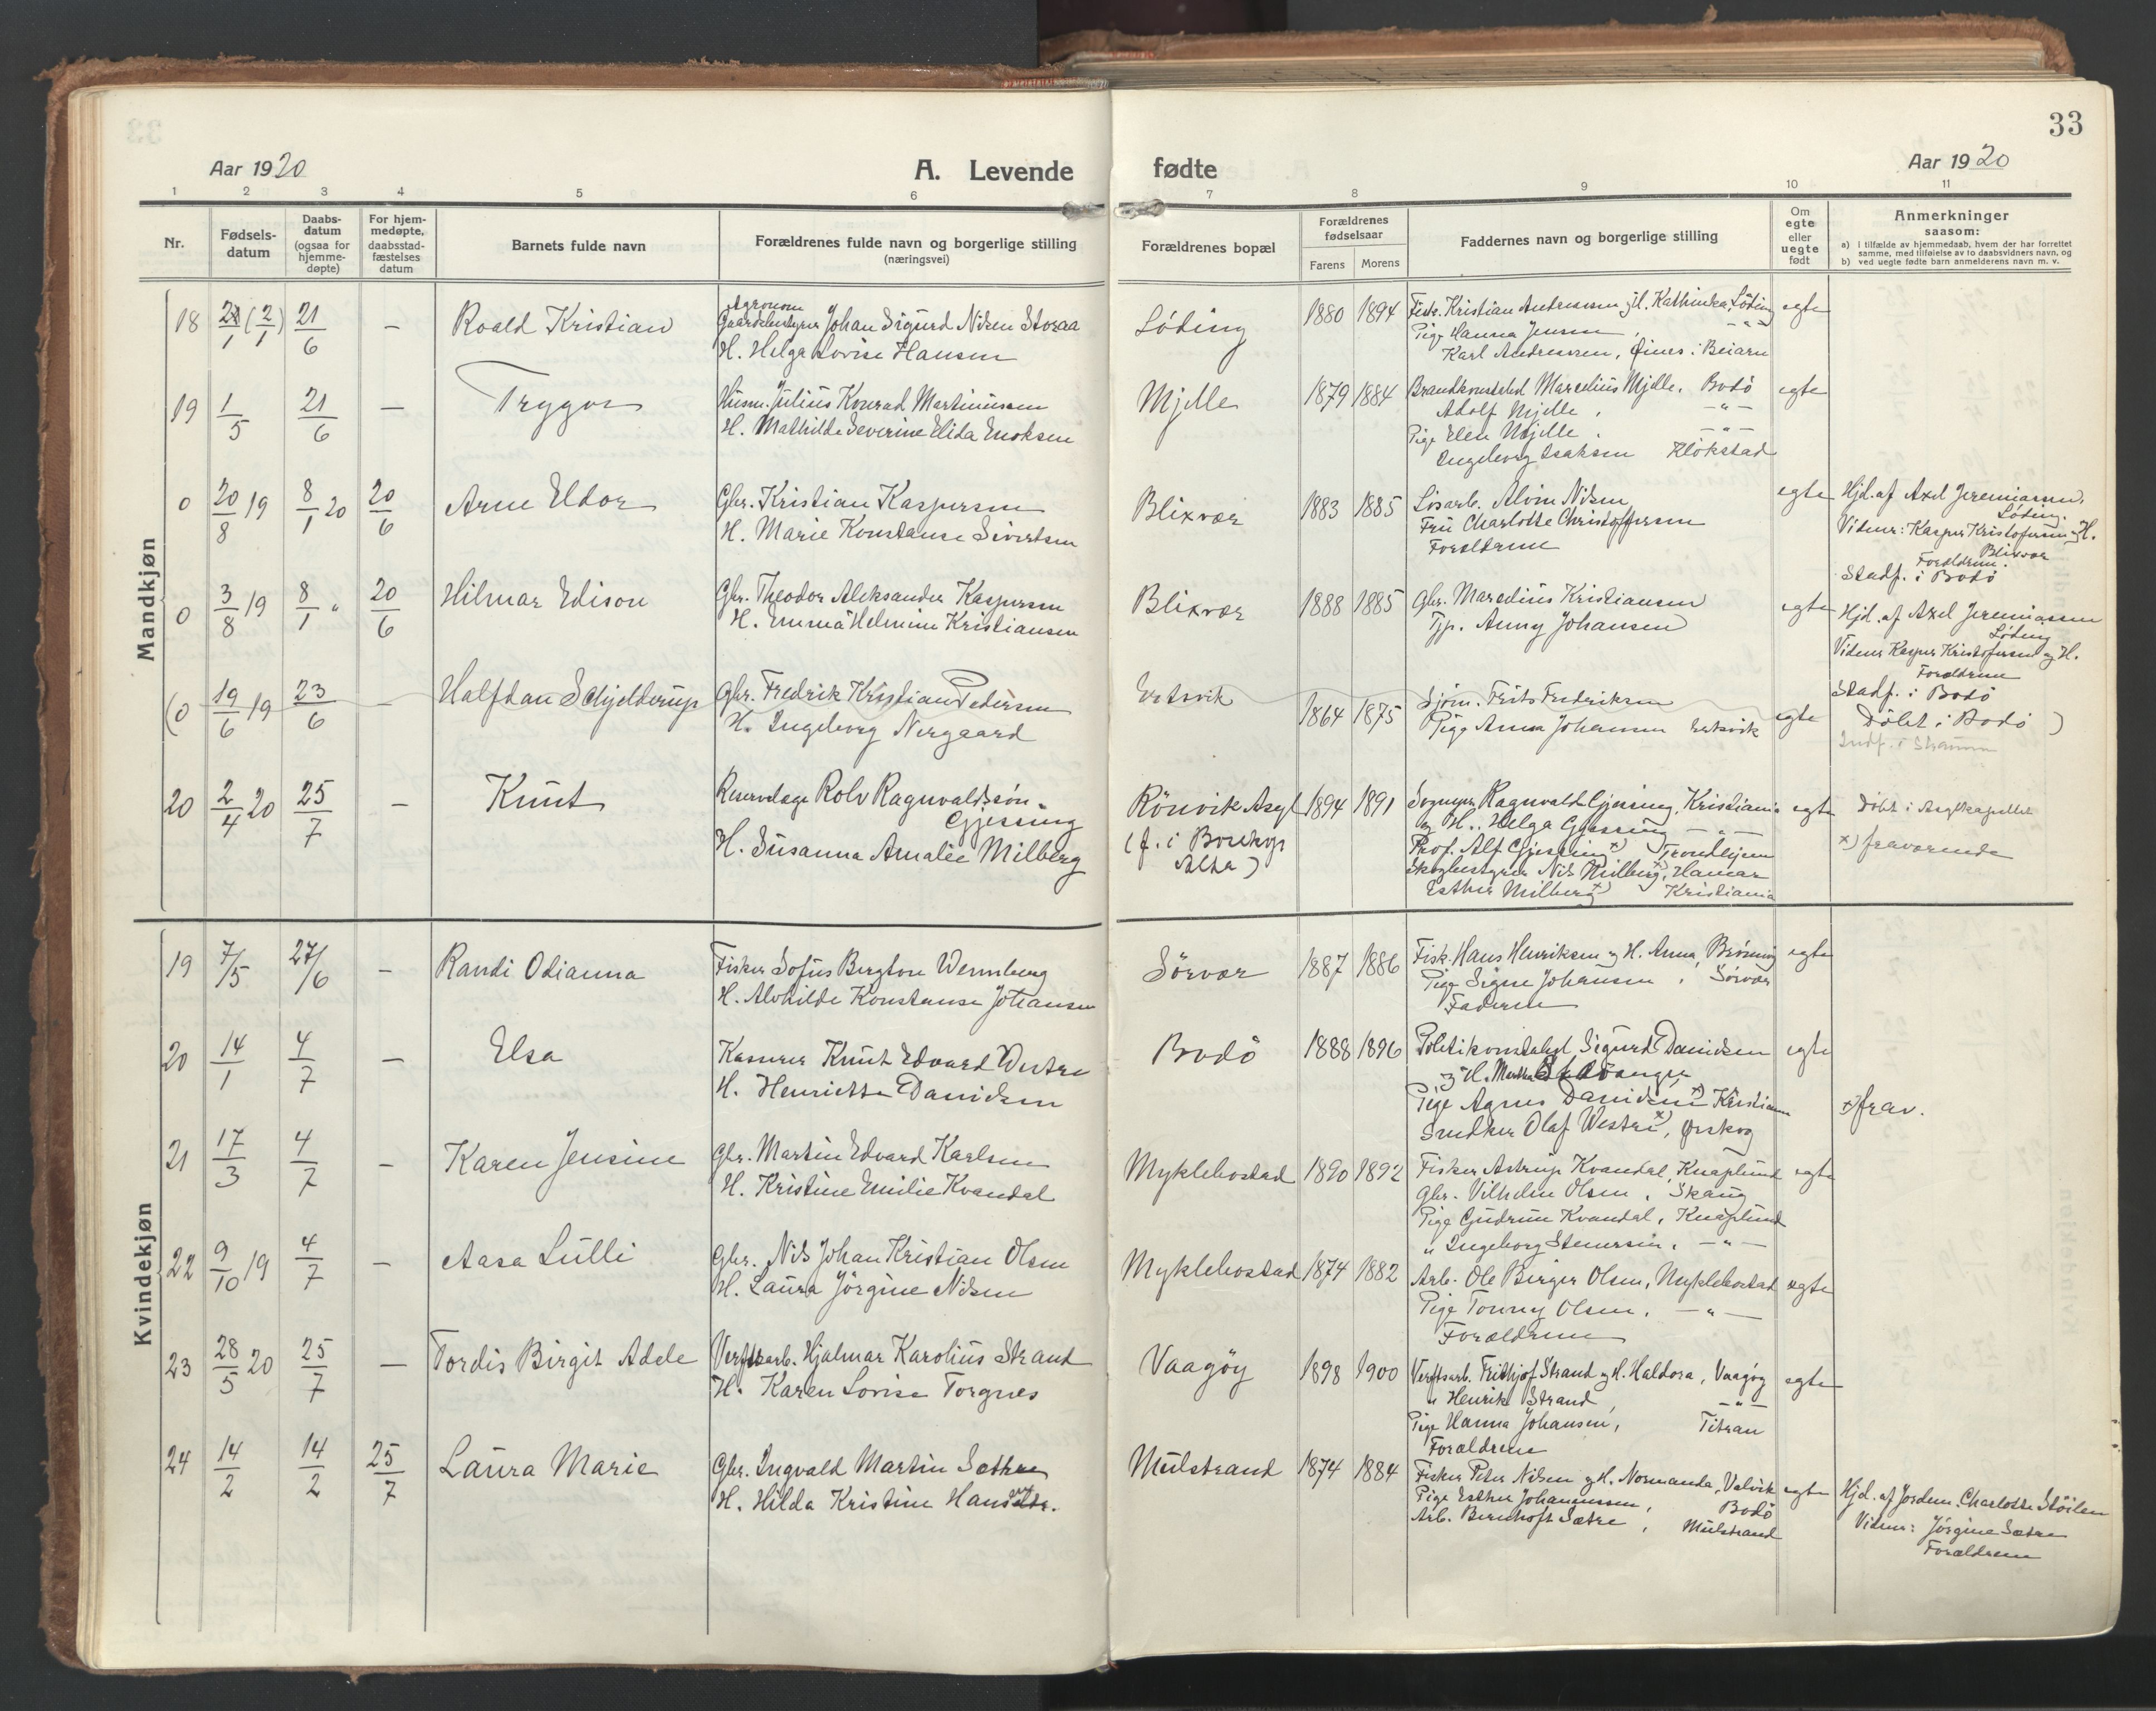 33
Aar 1920
A. Levende
fødte
Aar 1920
1 2 3 4 5 6 7 8 9 10 11
Nr.
Fødsels-
datum
Daabs-
datum
(ogsaa for
hjemme-
døpte)
For hjem-
medøpte,
daabsstad-
fæstelses
datum
Barnets fulde navn
Forældrenes fulde navn og borgerlige stilling
(næringsvei)
Forældrenes bopæl
Forældrenes
fødselsaar
Farens Morens
Faddernes navn og borgerlige stilling
Om
egte
eller
uegte
født
Anmerkninger
saasom:
a) i tilfælde av hjemmedaab, hvem der har forrettet
samme, med tilføielse av to daabsvidners navn, og
b) ved uegte fødte barn anmelderens navn m. v.
Mandkjøn
18 (2/1) 21/6 — Roald Kristian
Agronom
Gaardsbestyrer Johan Sigurd Nilsen Storaa
H. Helga Lovise Hansen
Löding 1880 1894
Fisk. Kristian Andreassen og H. Kathinka, Löding egte
Pige Hanna Jensen, — " —
Karl Andreassen, Øines i Beiarn
19 1/5 21/6 — Trygve
Husm. Julius Konrad Martinussen
H. Mathilde Severine Elida Enoksen
Mjelle 1879 1884
Brandkonstabel Marselius Mjelle, Bodö egte
Adolf Mjelle, — " —
Pige Elen Mjelle, — " —
Ingeborg Isaksen Klökstad
0 20/8 19 8/1 20 20/6 Arne Eldor
Gbr. Kristian Kaspersen
H. Marie Konstanse Sivertsen
Blixvær 1883 1885
Lösarb. Alvin Nilsen egte
Fru Charlotte Christoffersen
Forældrene
Hjd. af Axel Jeremiassen,
Löding.
Vidner: Kasper Kristofersen og H.
Blixvær
Forældrene.
Stadf. i Bodö
0 3/8 19 8/1 " 20/6 Hilmar Edison
Gbr. Theodor Aleksander Kaspersen
H. Emma Helmine Kristiansen
Blixvær 1888 1885
Gbr. Marselius Kristiansen egte
Tjp. Anny Johansen
Hjd. af Axel Jeremiassen
Löding
Vidner Kasper Kristofersen og H.
Forældrene
Stadf. i Bodö
(0 19/6 19 23/6 — Halfdan Schjelderup
Gbr. Fredrik Kristian Pedersen
H. Ingeborg Nergaard
Ertsvik 1864 1875
Sjöm. Frits Fredriksen
Pige Anna Johansen Ertsvik egte
Döbt i Bodö )
20 2/4 20 25/7 — Knut
Reservelæge Rolv Ragnvaldssön
Gjessing
H. Susanna Amalie Milberg
Rönvik Asyl
(f. i Bosekop
Alta)
1894 1891
Sognepr. Ragnvald Gjessing, Kristiania egte
og H. Helga Gjessing — " —
Prof. Alf Gjessing x) Trondhjem
Skogbestyrer Nils Milberg x), Hamar
Esther Milberg x) Kristiania
Döbt i Asylkapellet
x) fraværende
Kvindekjøn
19 7/5 27/6 — Randi Odianna
Fisker Sofus Bergton Wennberg
H. Alvhilde Konstanse Johansen
Sörvær 1887 1886
Fisk. Hans Henriksen og H. Anna, egte
Pige Signe Johansen, Sörvær
Faderen
20 14/1 4/7 — Elsa
Kasserer Knut Edvard Westre
H. Henriette Danielsen
Bodö 1888 1896
Politikonstabel Sigurd Danielsen egte
og H. Stavanger
Pige Agnes Danielsen x) Kristiania
Snedker Olaf Westre x), Ørskog
x) frav.
21 17/3 4/7 — Karen Jensine
Gbr. Martin Edvard Karlsen
H. Kristine Emilie Kvandal
Myklebostad 1890 1892
Fisker Astrup Kvandal, Knaplund egte
Gbr. Vilhelm Olsen, Skaug
Pige Gudrun Kvandal, Knaplund
" Ingeborg Stenersen, — " —
22 9/10 19 4/7 — Aasa Lulli
Gbr. Nils Johan Kristian Olsen
H. Laura Jörgine Nilsen
Myklebostad 1874 1882
Arb. Ole Birger Olsen, Myklebostad egte
Pige Tonny Olsen, — " —
Forældrene
23 28/5 20 25/7 — Tordis Birgit Adele
Verftsarb. Hjalmar Karolius Strand
H. Karen Lovise Torgnes
Vaagöy 1898 1900
Verftsarb. Frithjof Strand og H. Haldora, Vaagöy egte
" Henrik Strand, — " —
Pige Hanna Johansen, Titran
Forældrene
24 14/2 14/2 25/7 Laura Marie
Gbr. Ingvald Martin Sæthre
H. Hilda Kristine
Mulstrand 1874 1884
Fisker Peter Nilsen og H. Normanda, Valvik egte
Pige Esther Johannessen, Bodö
Arb. Bernhoft Sætre, Mulstrand
Hjd. af Jordem. Charlotte Stöilen
Vidner: Jörgine Sætre
Forældrene